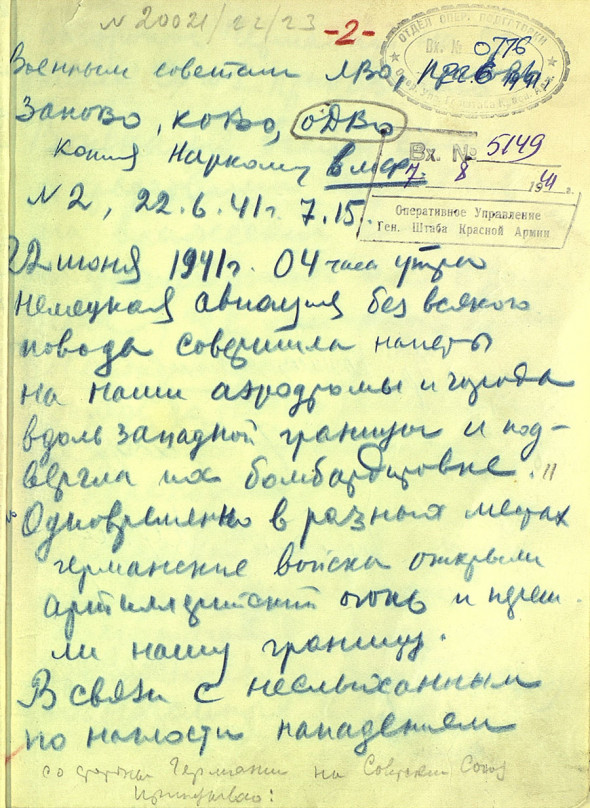 N 20021/22/23
-2-
ОТДЕЛ ОПЕР. ПОДГОТОВКИ
Вх. № 0776
Военным советам ЛВО, ПрибОВО
ЗапОВО, КОВО, ОДВО
Вх. № 5149
Копия Наркому ВМФ.
7. 8 1941 г.
N 2, 22.6.41г. 7.15.
Оперативное Управление
Ген. Штаба Красной Армии
22 июня 1941г. 04 часа утра
немецкая авиация без всякого
повода совершила налеты
на наши аэродромы и города
вдоль западной границы и под-
вергла их бомбардировке.
Одновременно в разных местах
германские войска открыли
артиллерийский огонь и переш
ли нашу границу.
В связи с неслыханным
по наглости нападением
со стороны Германии на Советский Союз
приказываю: